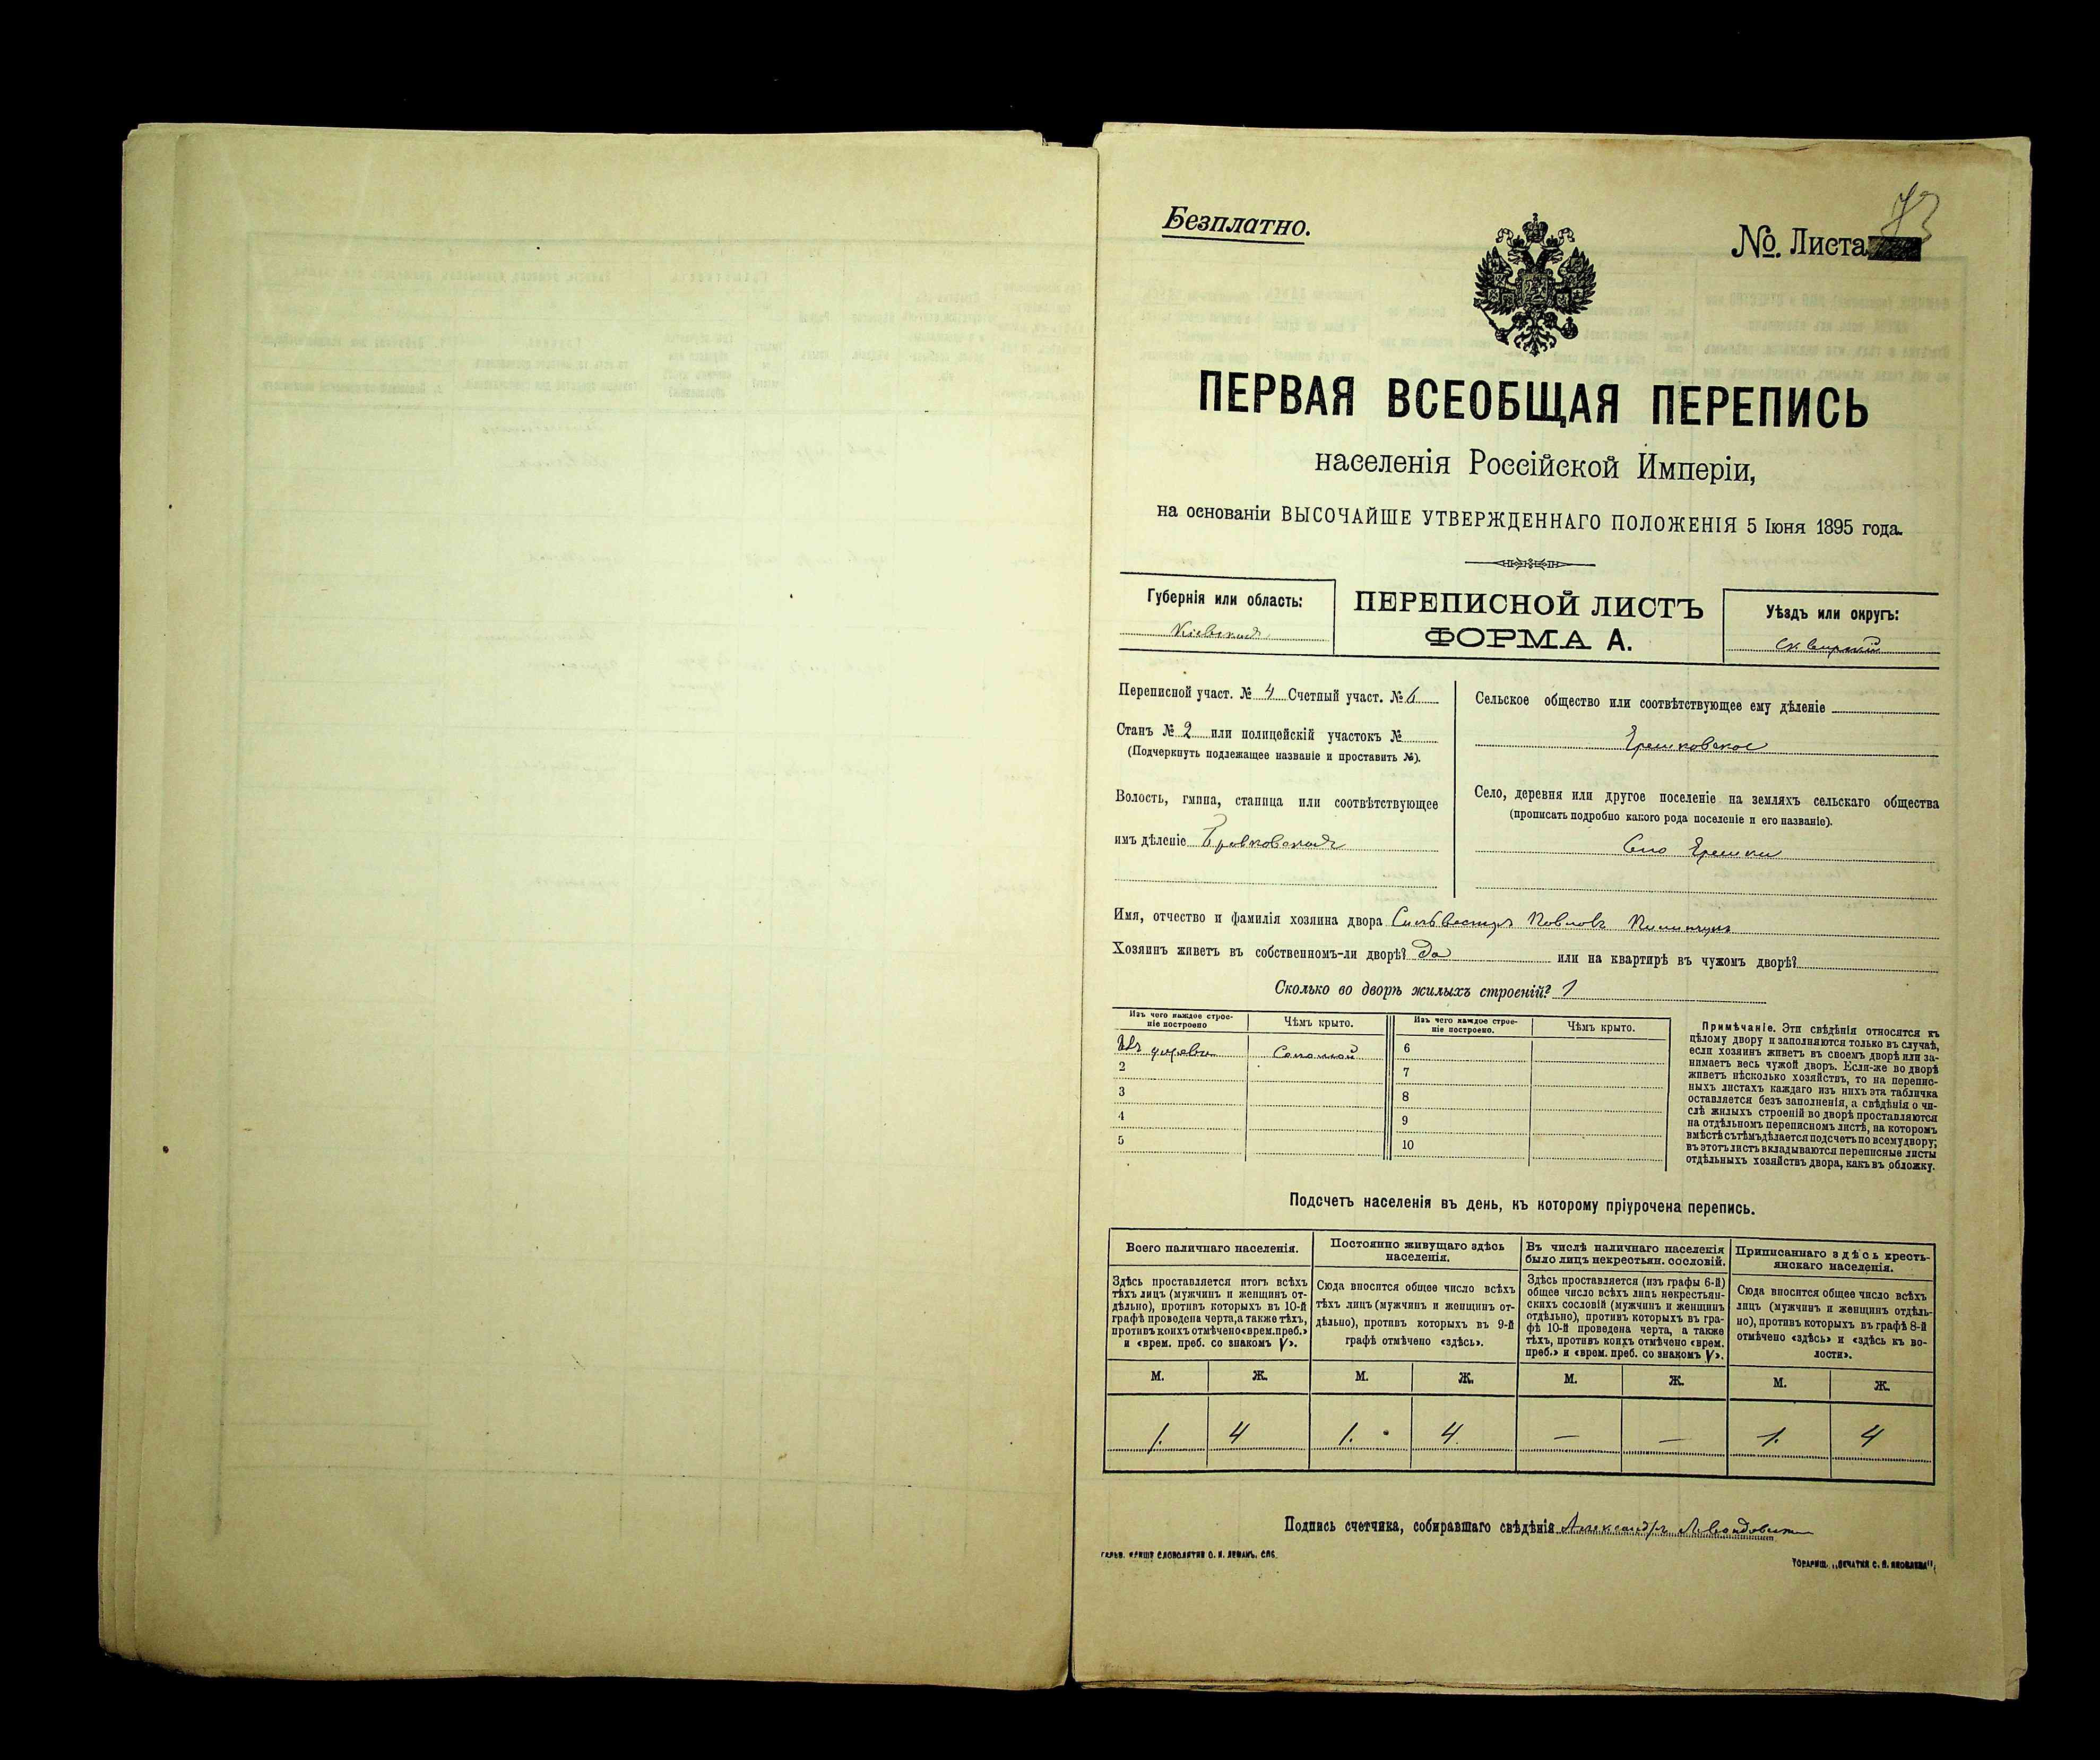 Безплатно.
№. Листа 73
ПЕРВАЯ ВСЕОБЩАЯ ПЕРЕПИСЬ
населенія Россійской Имперіи,
на основаніи ВЫСОЧАЙШЕ УТВЕРЖДЕННАГО ПОЛОЖЕНІЯ 5 Іюня 1895 года.
Губернія или область:
Кіевская
ПЕРЕПИСНОЙ ЛИСТЪ
ФОРМА А.
Уѣздъ или округъ:
Сквирскій
Переписной участ. № 4 Счетный участ. № 6
Станъ № 2 или полицейскій участокъ №
(Подчеркнуть подлежащее названіе и проставить №).
Волость, гмина, станица или соотвѣтствующее
имъ дѣленіе Бровковская
Сельское общество или соотвѣтствующее ему дѣленіе
Ярешковское
Село, деревня или другое поселеніе на земляхъ сельскаго общества
(прописать подробно какого рода поселеніе и его названіе).
Село Ярешки
Имя, отчество и фамилія хозяина двора Сильвестръ Павловъ
Хозяинъ живетъ въ собственномъ-ли дворѣ? Да или на квартирѣ въ чужомъ дворѣ?
Сколько во дворѣ жилыхъ строеній? 1
Изъ чего каждое строе-
ніе построено
Чѣмъ крыто.
Изъ чего каждое строе-
ніе построено.
Чѣмъ крыто.
Изъ дерева Соломой
2
3
4
5
6
7
8
9
10
Примѣчаніе. Эти свѣдѣнія относятся къ
цѣлому двору и заполняются только въ случаѣ,
если хозяинъ живетъ въ своемъ дворѣ или за-
нимаетъ весь чужой дворъ. Если-же во дворѣ
живетъ нѣсколько хозяйствъ, то на перепис-
ныхъ листахъ каждаго изъ нихъ эта табличка
оставляется безъ заполненія, а свѣдѣнія о чи-
слѣ жилыхъ строеній во дворѣ проставляются
на отдѣльномъ переписномъ листѣ, на которомъ
вмѣстѣ съ тѣмъ дѣлается подсчетъ по всему двору;
въ этотъ листъ вкладываются переписные листы
отдѣльныхъ хозяйствъ двора, какъ въ обложку.
Подсчетъ населенія въ день, къ которому пріурочена перепись.
Всего наличнаго населенія.
Здѣсь проставляется итогъ всѣхъ
тѣхъ лицъ (мужчинъ и женщинъ от-
дѣльно), противъ которыхъ въ 10-й
графѣ проведена черта, а также тѣхъ,
противъ коихъ отмѣчено «врем. преб.»
и «врем. преб. со знакомъ V».
Постоянно живущаго здѣсь
населенія.
Сюда вносится общее число всѣхъ
тѣхъ лицъ (мужчинъ и женщинъ от-
дѣльно), противъ которыхъ въ 9-й
графѣ отмѣчено «здѣсь».
Въ числѣ наличнаго населенія
было лицъ некрестьян. сословій.
Здѣсь проставляется (изъ графы 6-й)
общее число всѣхъ лицъ некрестьян-
скихъ сословій (мужчинъ и женщинъ
отдѣльно), противъ которыхъ въ гра-
фѣ 10-й проведена черта, а также
тѣхъ, противъ коихъ отмѣчено «врем.
преб.» и «врем. преб. со знакомъ V».
Приписаннаго здѣсь кресть-
янскаго населенія.
Сюда вносится общее число всѣхъ
лицъ (мужчинъ и женщинъ отдѣль-
но), противъ которыхъ въ графѣ 8-й
отмѣчено «здѣсь» и «здѣсь къ во-
лости».
М. Ж. М. Ж. М. Ж. М. Ж.
1. 4 1. 4 — — 1. 4
Подпись счетчика, собиравшаго свѣдѣнія Александръ
ТОВАРИЩ. „ПЕЧАТНЯ С. П. ЯКОВЛЕВА“